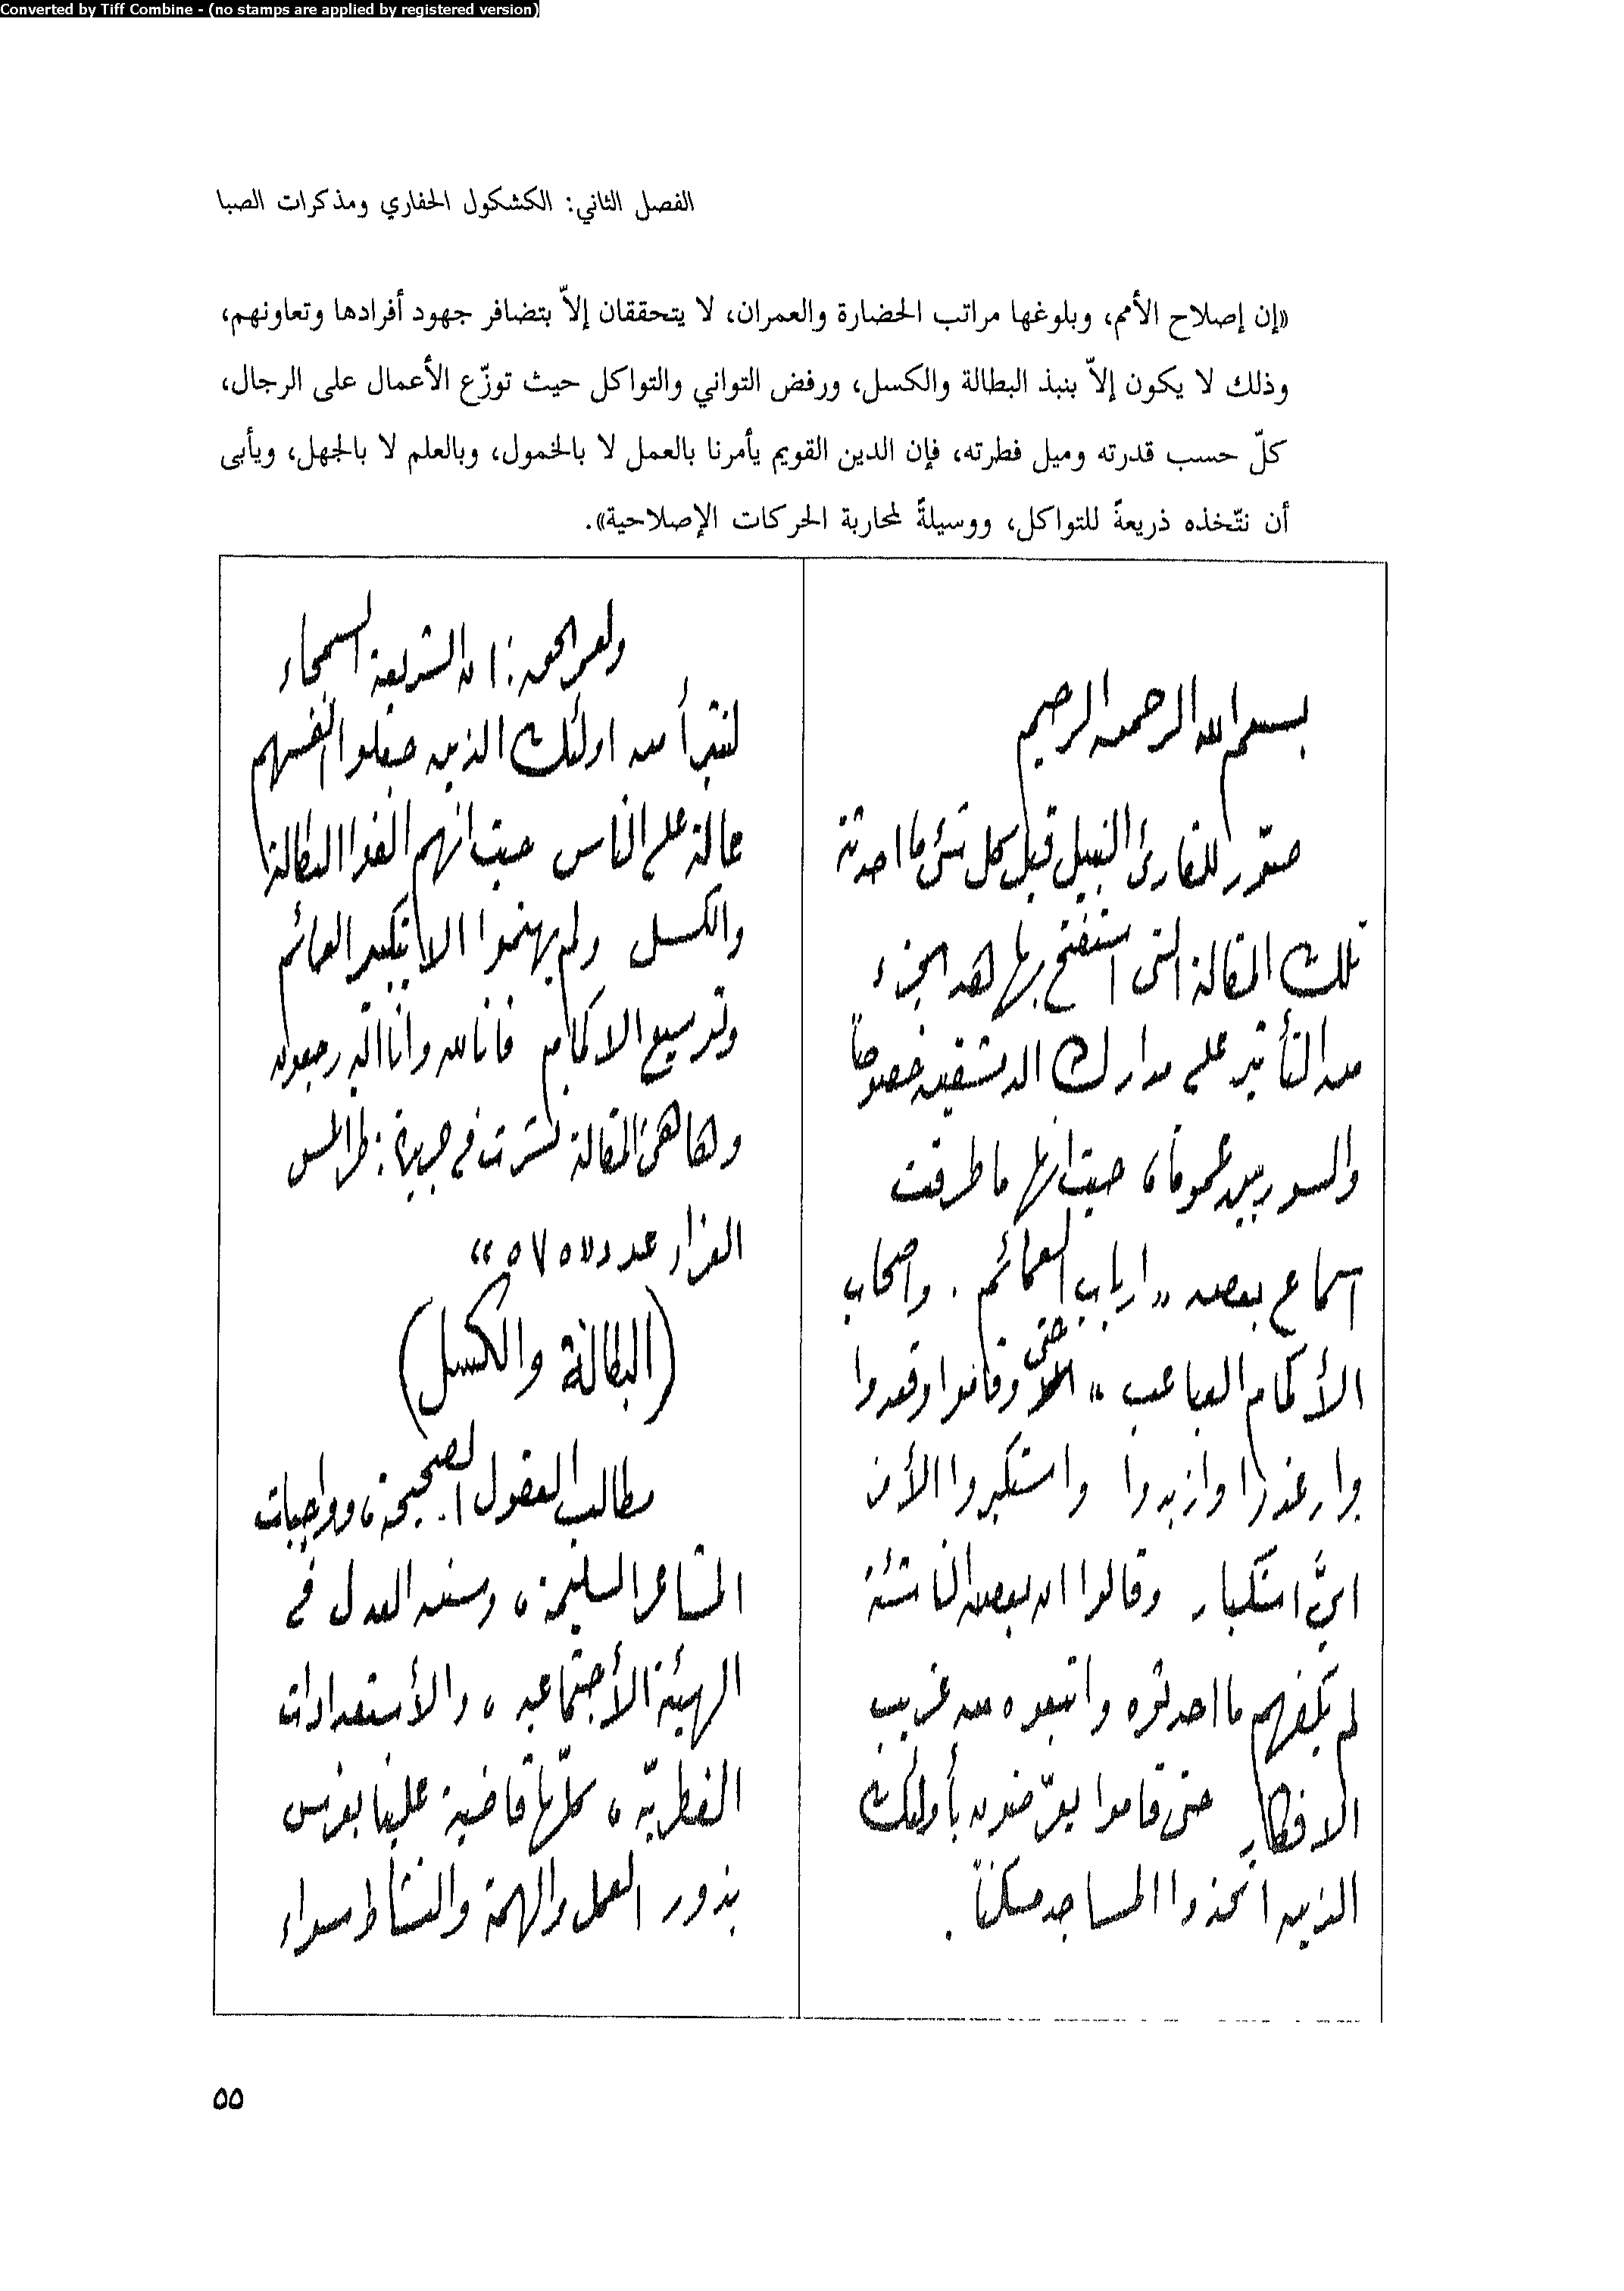 Converted by Tiff Combine - (no stamps are applied by registered version)
الفصل الثاني: الكشكول الحفاري ومذكرات الصبا
«إن إصلاح الأمم، وبلوغها مراتب الحضارة والعمران، لا يتحققان إلاّ بتضافر جهود أفرادها وتعاونهم،
وذلك لا يكون إلاّ بنبذ البطالة والكسل، ورفض التواني والتواكل حيث توزّع الأعمال على الرجال،
كلّ حسب قدرته وميل فطرته، فإن الدين القويم يأمرنا بالعمل لا بالخمول، وبالعلم لا بالجهل، ويأبى
أن نتّخذه ذريعةً للتواكل، ووسيلةً لمحاربة الحركات الإصلاحية».
بسم الله الرحمن الرحيم
للقارئ النبيل قبل كل شئ ما احدثة
تلك المقالة التى استفتح بها هذا الجزء
من التأثير على مدارك الدمشقيين خصوصاً
والسوريين عموماً، حيث انها ما طرقت
اسماع بعض «ارباب العمائم. واصحاب
الأكمام العباعب» حتى وقاموا وقعدوا
وارغدوا وازبدوا واستكبروا الأمر
ايَّ استكبار وقالوا ان بعض الناشئة
لم يكفهم ما احدثوه واتبعوه من غريب
الافكار حتى قاموا يعرّضون بأولئك
الذين اتخذوا المساجد مسكناً.
ولعمر الحق: ان الشريعة السمحاء
لتتبرأ من اولئك الذين جعلوا انفسهم
عالة على الناس حيث انهم الفوا البطالة
والكسل ولم يهتموا الا بتكبير العمائم
وتوسيع الاكمام فانا لله وانا اليه رجعون
وها هى المقالة نشرت في جريدة: طرابلس
الغراء عدد «٥٧٥»
(البطالة والكسل)
مطالب العقول الصحيحة، وواجبات
المشاعر السليمة، وسنن العدل في
الهيئة الأجتماعيه، والأستعدادات
الفطريّه، كلّها قاضية علينا بغرس
بذور العمل والهمة والنشاط سواء
٥٥